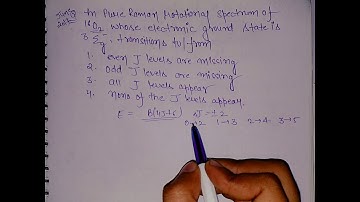 In Pure Raman Rotational spectrum of
16 O2 whose electronic ground state is
3 Σg-, transitions
1. even J levels are missing
2. odd J levels are missing
3. all J levels appear
4. none of the J levels appear.
E = B(4J+6) ΔJ = ±2
0→2 1→3 2→4 3→5